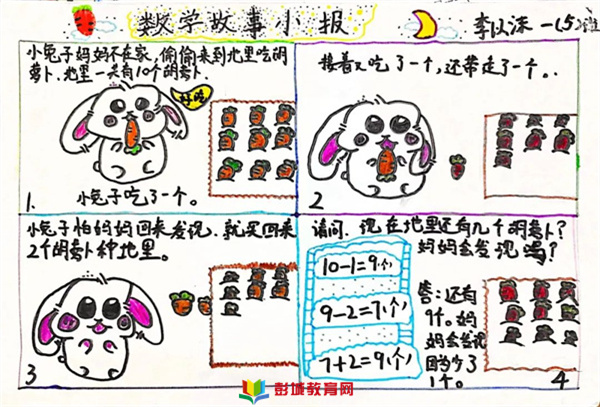 数学故事小报
李以沫 一(5)班
小兔子妈妈不在家,偷偷来到地里吃胡
萝卜.地里一共有10个胡萝卜.
好吃
1. 小兔子吃了一个。
接着又吃了一个,还带走了一个.
2
小兔子怕妈妈回来发现.就买回来
2个胡萝卜种地里。
3
请问.现在地里还有几个胡萝卜?
妈妈会发现吗?
10-1=9(个)
9-2=7(个)
7+2=9(个)
答:还有
9个.妈
妈会发现
因为少了
1个.
4
彭城教育网